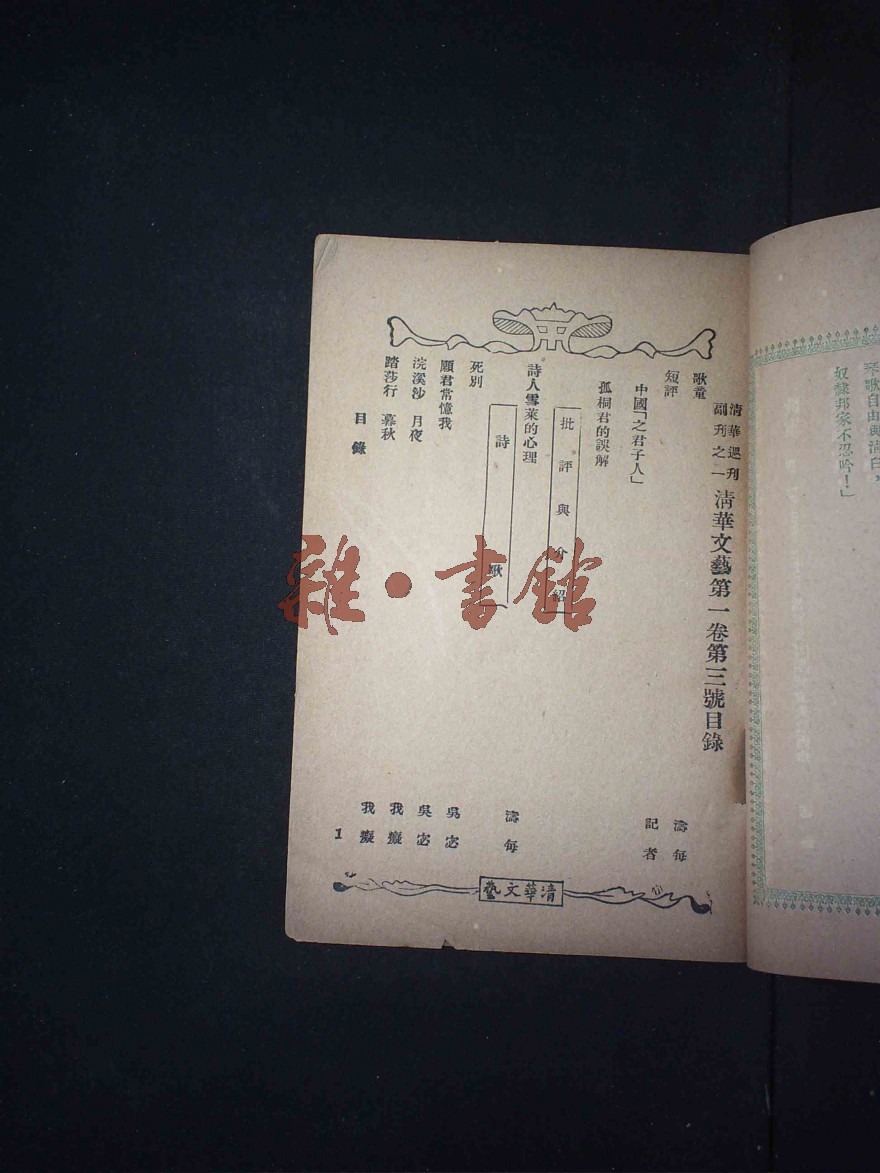 琴歌自由與清白，
奴隸邦家不忍吟！」
清華週刊
副刊之一
清華文藝第一卷第三號目錄
歌童 濤每
短評 記者
中國「之君子人」
孤桐君的誤解
批評與介紹
詩人雪萊的心理 濤每
詩歌
死別 吳宓
願君常憶我 吳宓
浣溪沙 月夜 我癡
踏莎行 暮秋 我癡
目錄 1
清華文藝
雜·書館